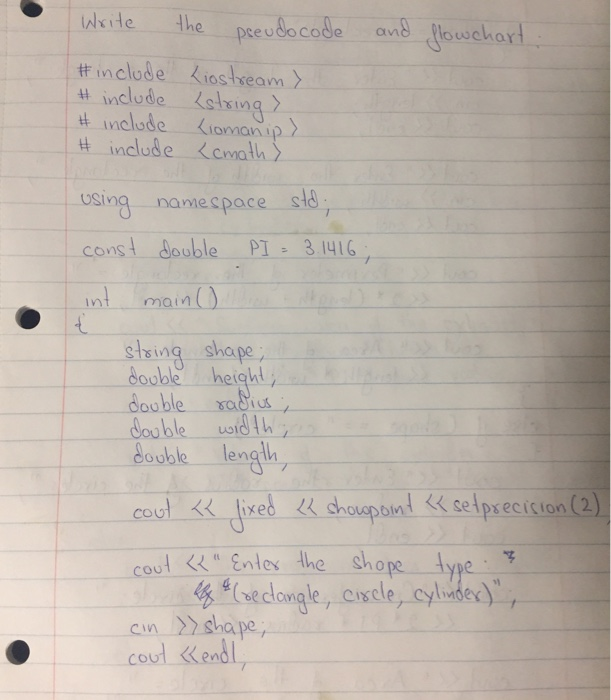 Write the pseudocode and flowchart.
#include <iostream>
# include <string>
# include <iomanip>
# include <cmath>
using namespace std;
const double PI = 3.1416;
int main()
{
string shape;
double height;
double radius;
double width;
double length;
cout << fixed << showpoint << setprecision(2)
cout <<" Enter the shape type:
"(rectangle, circle, cylinder)";
cin >> shape;
cout <<endl;